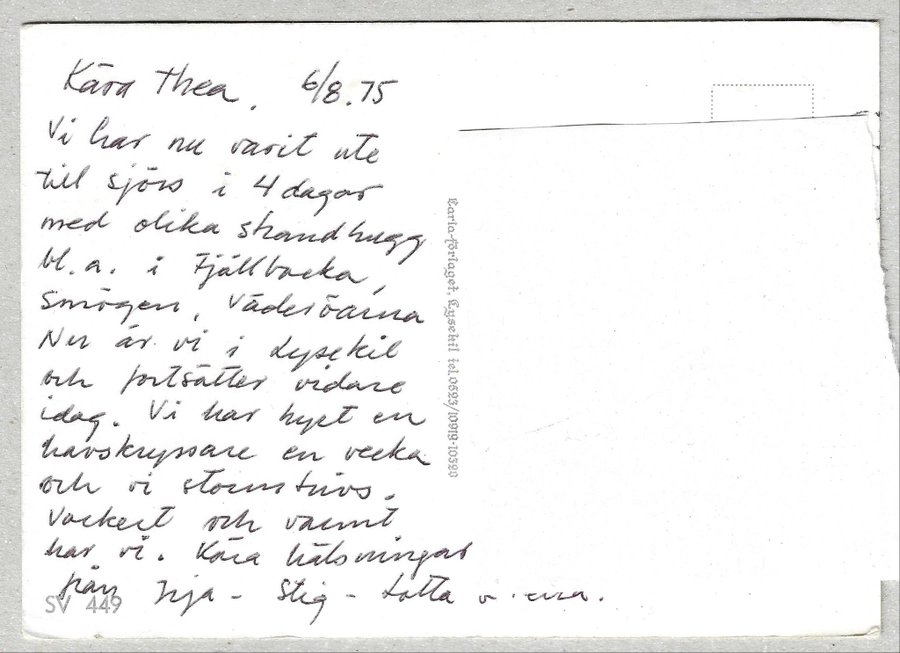 Kära Thea. 6/8.75
Vi har nu varit ute
till sjöss i 4 dagar
med olika strandhugg
bl.a. i Fjällbacka,
Smögen, Väderöarna
Nu är vi i Lysekil
och fortsätter vidare
idag. Vi har hyrt en
havskryssare en vecka
och vi stormtrivs.
Vackert och varmt
har vi. Kära hälsningar
från - Stig - Lotta
SV 449
Carla-förlaget, Lysekil tel. 0523/10919-10320